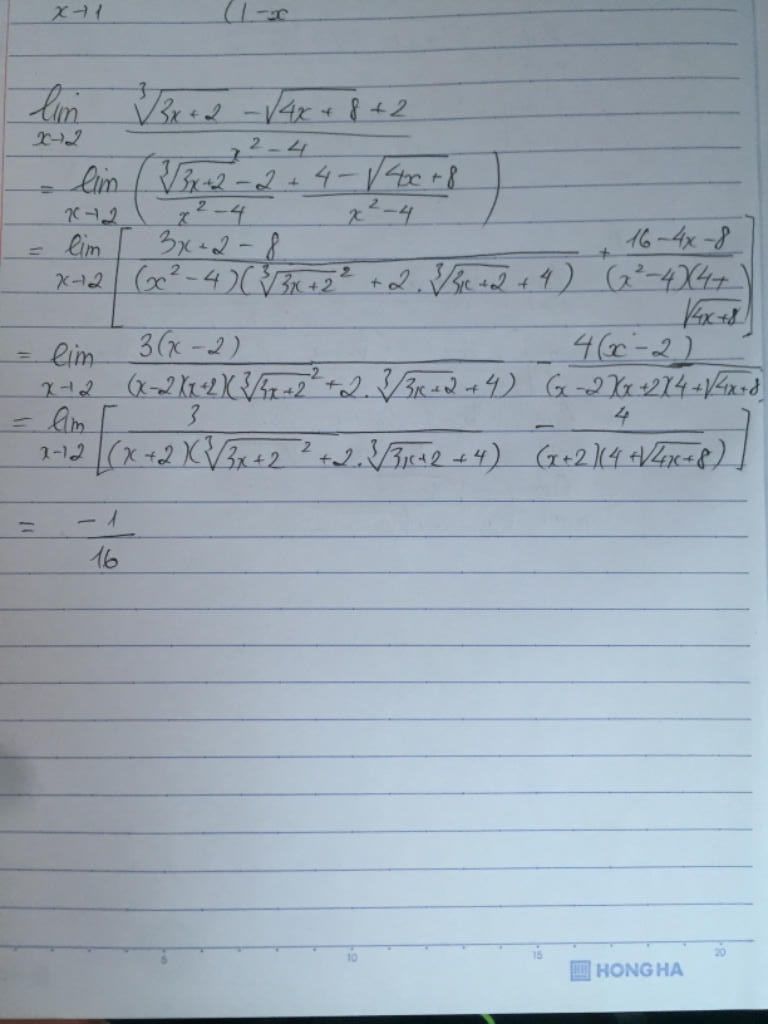 x→1 (1-x
lim x→2 (∛(3x+2) - √(4x+8) + 2)/(x²-4)
= lim x→2 ((∛(3x+2) - 2)/(x²-4) + (4-√(4x+8))/(x²-4))
= lim x→2 [(3x+2-8)/((x²-4)(∛(3x+2)² + 2.∛(3x+2) + 4)) + (16-4x-8)/((x²-4)(4+√(4x+8)))]
= lim x→2 3(x-2)/((x-2)(x+2)(∛(3x+2)² + 2.∛(3x+2) + 4)) - 4(x-2)/((x-2)(x+2)(4+√(4x+8))
= lim x→2 [3/((x+2)(∛(3x+2)² + 2.∛(3x+2) + 4)) - 4/((x+2)(4+√(4x+8)))]
= -1/16
5 10 15 20
HONG HA